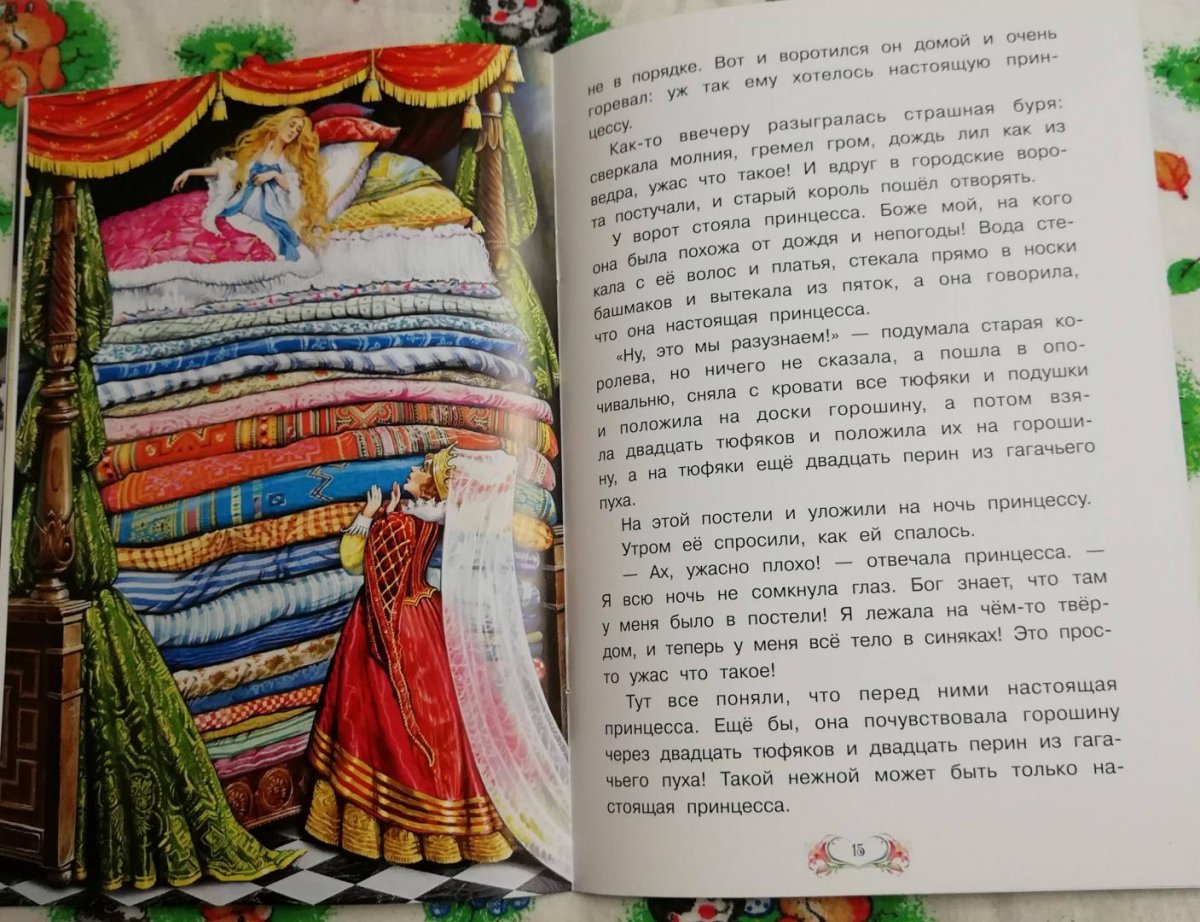 не в порядке. Вот и воротился он домой и очень
горевал: уж так ему хотелось настоящую прин-
цессу.
Как-то ввечеру разыгралась страшная буря:
сверкала молния, гремел гром, дождь лил как из
ведра, ужас что такое! И вдруг в городские воро-
та постучали, и старый король пошёл отворять.
У ворот стояла принцесса. Боже мой, на кого
она была похожа от дождя и непогоды! Вода сте-
кала с её волос и платья, стекала прямо в носки
башмаков и вытекала из пяток, а она говорила,
что она настоящая принцесса.
«Ну, это мы разузнаем!» — подумала старая ко-
ролева, но ничего не сказала, а пошла в опо-
чивальню, сняла с кровати все тюфяки и подушки
и положила на доски горошину, а потом взя-
ла двадцать тюфяков и положила их на гороши-
ну, а на тюфяки ещё двадцать перин из гагачьего
пуха.
На этой постели и уложили на ночь принцессу.
Утром её спросили, как ей спалось.
— Ах, ужасно плохо! — отвечала принцесса. —
Я всю ночь не сомкнула глаз. Бог знает, что там
у меня было в постели! Я лежала на чём-то твёр-
дом, и теперь у меня всё тело в синяках! Это прос-
то ужас что такое!
Тут все поняли, что перед ними настоящая
принцесса. Ещё бы, она почувствовала горошину
через двадцать тюфяков и двадцать перин из гага-
чьего пуха! Такой нежной может быть только на-
стоящая принцесса.
15